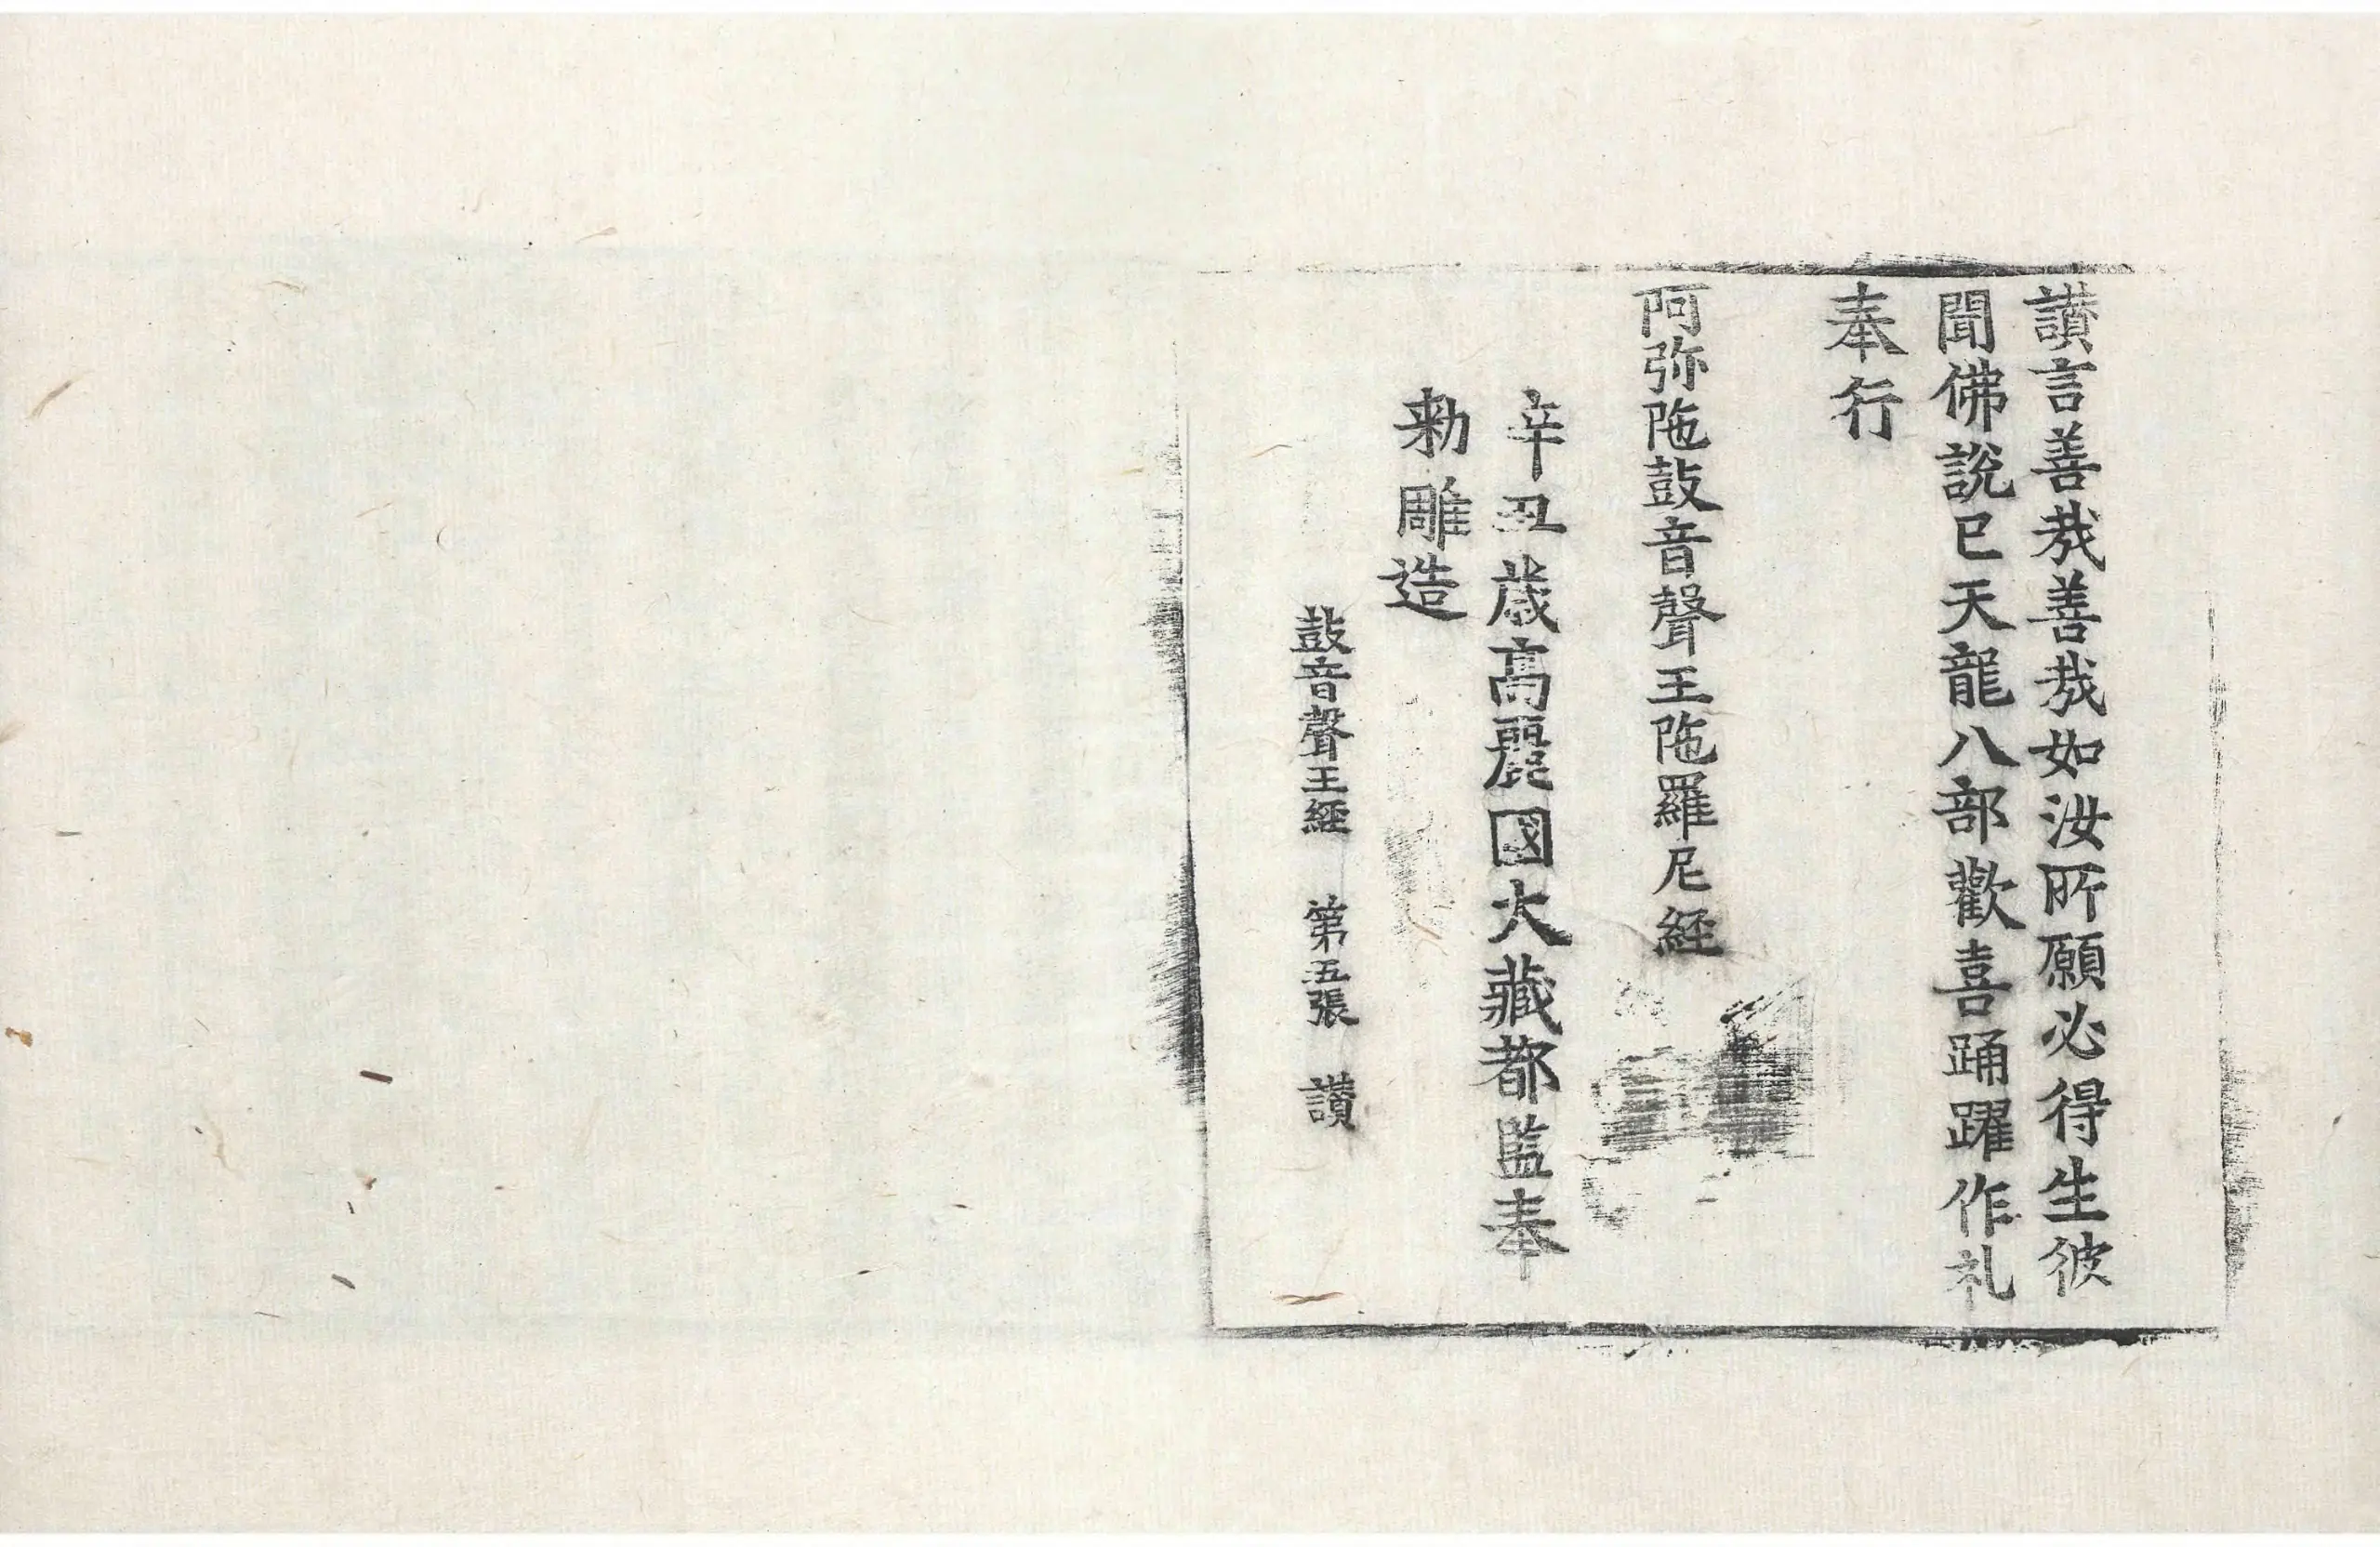 讃言善㢤善㢤如汝所願必得生彼
聞佛說已天龍八部歡喜踊躍作礼
奉行
阿弥陁鼓音聲王陁羅尼經
辛丑歳高麗國大藏都監奉
勑雕造
鼓音聲王經 第五張 讃